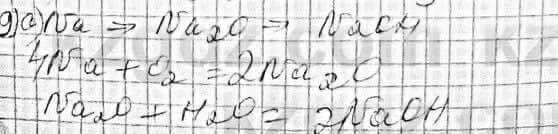 9)a) Na ⇒ Na₂O → NaOH
4Na + O₂ = 2Na₂O
Na₂O + H₂O = 2NaOH